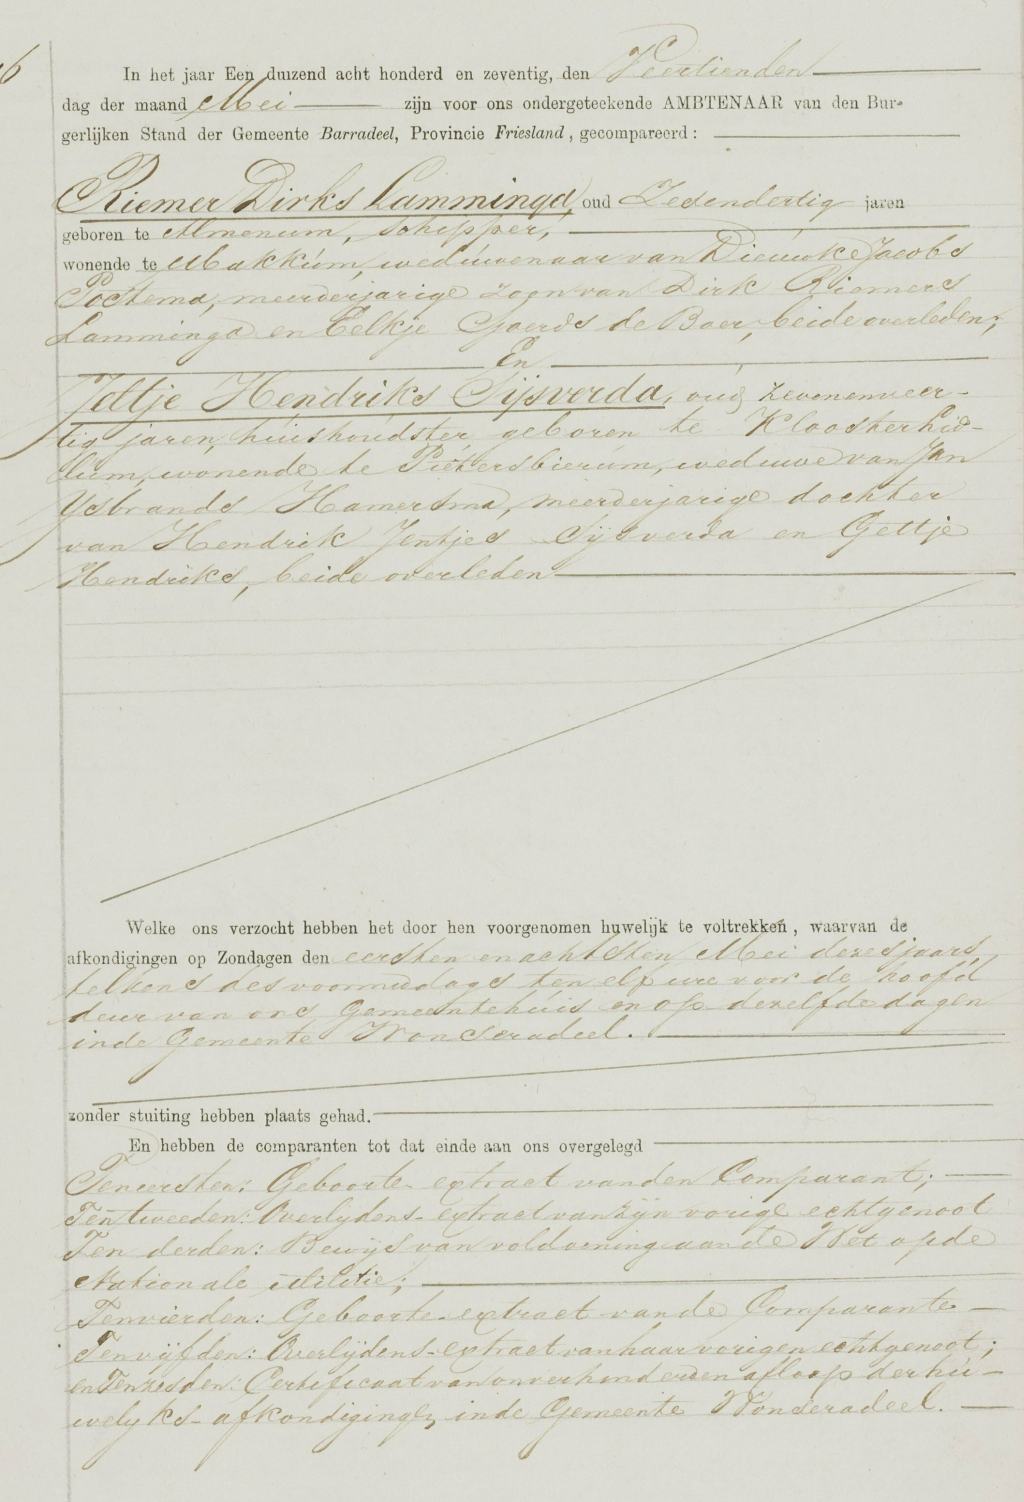 In het jaar Een duizend acht honderd en zeventig, den Veertienden
dag der maand Mei zijn voor ons ondergeteekende AMBTENAAR van den Bur-
gerlijken Stand der Gemeente Barradeel, Provincie Friesland, gecompareerd:
Riemer Dirks Lamminga, oud Zesendertig jaren
geboren te Almenum, Schipper,
wonende te Makkum, weduwenaar van Dieuwke Jacobs
Postema, meerderjarige zoon van Dirk Riemers
Lamminga en Eelkje Sjoerds de Boer, beide overleden;
En
Jeltje Hendriks Sijsverda, oud zevenenveer-
tig jaren, huishoudster, geboren te Kloosterlid-
lum, wonende te Pietersbierum, weduwe van Jan
Ysbrands Hamersma, meerderjarige dochter
van Hendrik Jentjes Sijsverda en Gettje
Hendriks, beide overleden
Welke ons verzocht hebben het door hen voorgenomen huwelijk te voltrekken, waarvan de
afkondigingen op Zondagen den eersten en achtsten Mei dezes jaars
telkens des voormiddags ten elf ure voor de hoofd
deur van ons Gemeentehuis en op dezelfde dagen
in de Gemeente Wonseradeel.
zonder stuiting hebben plaats gehad.
En hebben de comparanten tot dat einde aan ons overgelegd
Ten eersten: Geboorte-extract van den Comparant;
Ten tweeden: Overlijdens-extract van zijn vorige echtgenoot
Ten derden: Bewijs van voldoening aan de Wet op de
Nationale Militie;
Ten vierden: Geboorte-extract van de Comparante
Ten vijfden: Overlijdens-extract van haar vorigen echtgenoot;
en Ten zesden: Certificaat van onverhinderden afloop der hu-
welijks-afkondigingen in de Gemeente Wonseradeel.